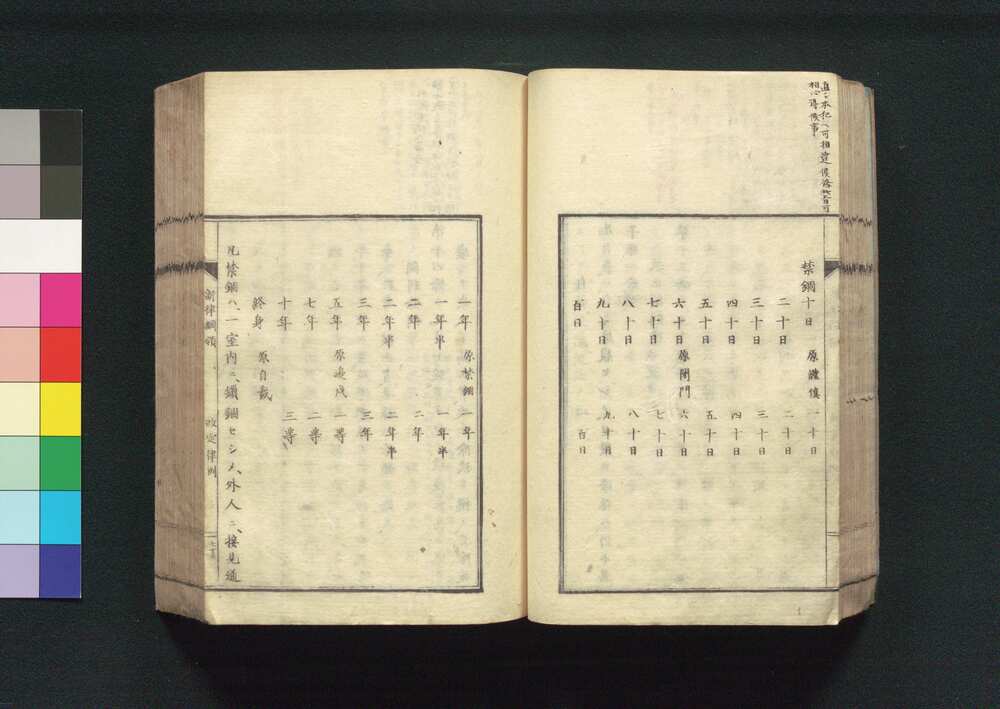 相心得候事
禁錮十日 原謹慎 一十日
二十日 二十日
三十日 三十日
四十日 四十日
五十日 五十日
六十日 原閉門 六十日
七十日 七十日
八十日 八十日
九十日 九十日
百日 百日
一年 原禁錮 一年
一年半 一年半
二年 二年
二年半 二年半
三年 三年
五年 原邊戍 一等
七年 二等
十年 三等
終身 原自裁
凡禁錮ハ、一室内ニ、鎖錮セシメ、外人ニ、接見通
新律綱領 改定律例